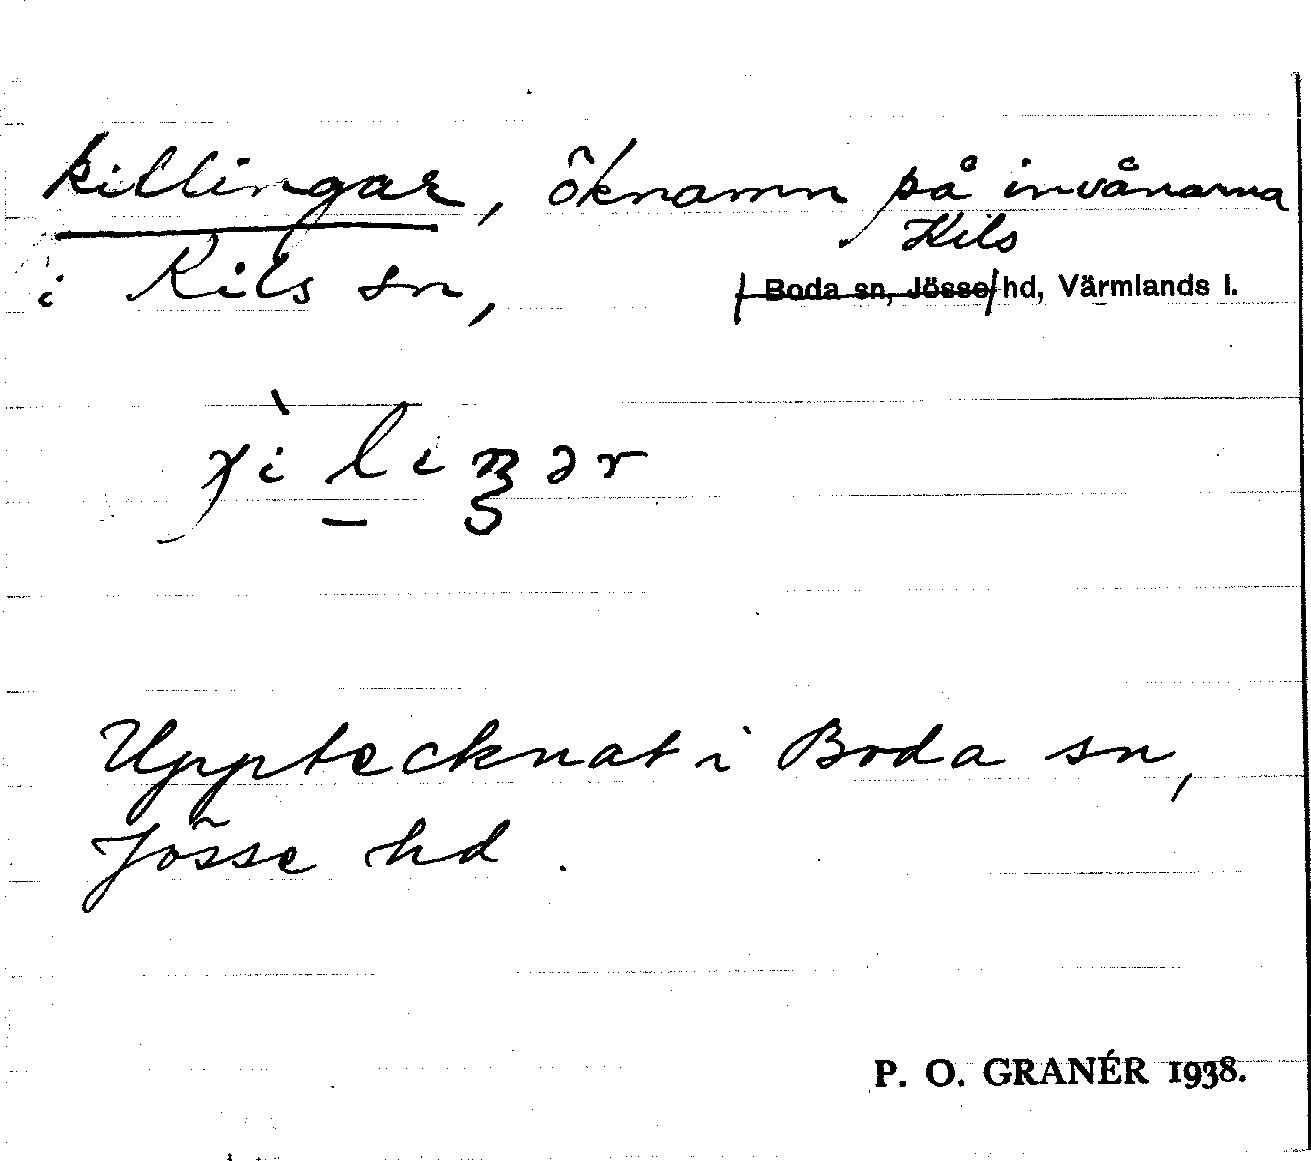 killingar, öknamn på invånarna
Kils
i Kils sn, Boda sn, Jösse hd, Värmlands l.
Upptecknat i Boda sn,
Jösse hd.
P. O. GRANÉR 1938.